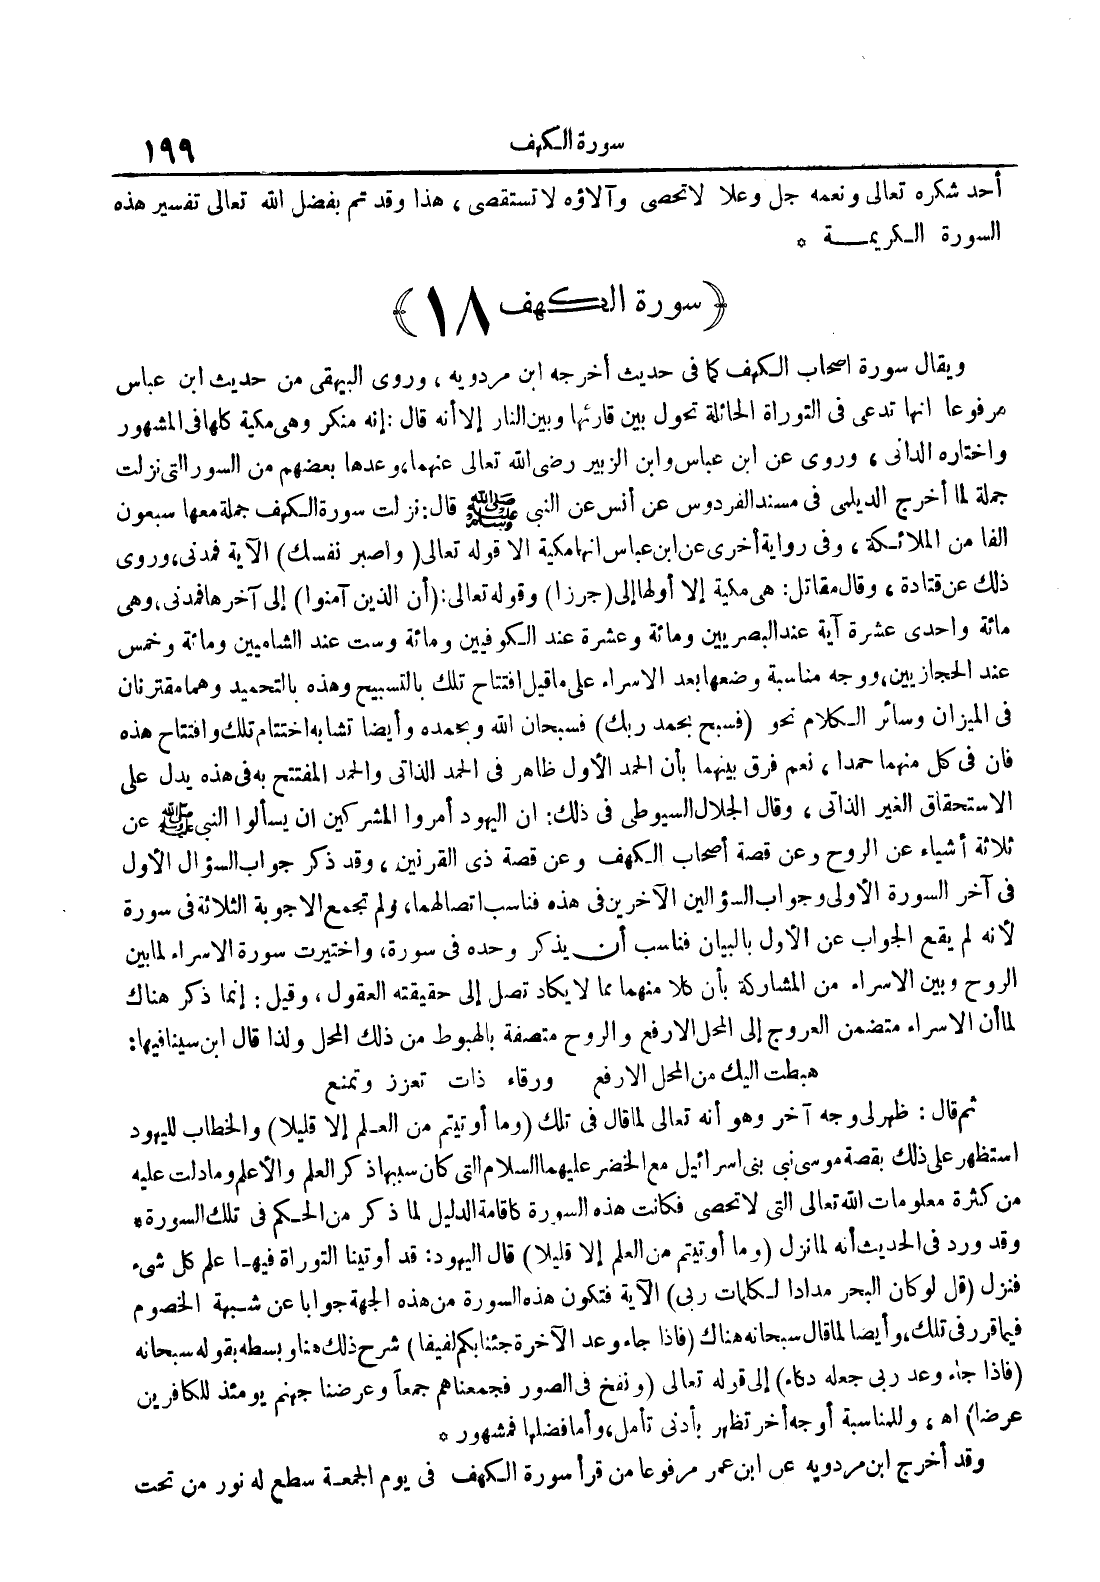 سورة الكهف ١٩٩
أحد شكره تعالى ونعمه جل وعلا لاتحصى وآلاؤه لاتستقصى ، هذا وقد تم بفضل الله تعالى تفسير هذه
السورة الكريمـــة *
﴿ سورة الكهف ١٨ ﴾
ويقال سورة اصحاب الكهف كما فى حديث أخرجه ابن مردويه ، وروى البيهقى من حديث ابن عباس
مرفوعا انها تدعى فى التوراة الحائلة تحول بين قارئها وبين النار إلا أنه قال : إنه منكر وهى مكية كلها فى المشهور
واختاره الدانى ، وروى عن ابن عباس وابن الزبير رضى الله تعالى عنهما، وعدها بعضهم من السور التى نزلت
جملة لما أخرج الديلمى فى مسند الفردوس عن أنس عن النبى ﷺ قال: نزلت سورة الكهف جملة معها سبعون
الفا من الملائكة ، وفى رواية أخرى عن ابن عباس انها مكية الا قوله تعالى ( واصبر نفسك) الآية فمدنى، وروى
ذلك عن قتادة ، وقال مقاتل: هى مكية إلا أولها إلى (جرزا) وقوله تعالى: (أن الذين آمنوا) إلى آخرها فمدنى، وهى
مائة واحدى عشرة آية عند البصريين ومائة وعشرة عند الكوفيين ومائة وست عند الشاميين ومائة وخمس
عند الحجازيين، ووجه مناسبة وضعها بعد الاسراء على ما قيل افتتاح تلك بالتسبيح وهذه بالتحميد وهما مقترنان
فى الميزان وسائر الكلام نحو (فسبح بحمد ربك) فسبحان الله وبحمده وأيضا تشابه اختتام تلك وافتتاح هذه
فان فى كل منهما حمدا ، نعم فرق بينهما بأن الحمد الأول ظاهر فى الحمد الذاتى والحمد المفتتح به فى هذه يدل على
الاستحقاق الغير الذاتى ، وقال الجلال السيوطى فى ذلك: ان اليهود أمروا المشركين ان يسألوا النبى ﷺ عن
ثلاثة أشياء عن الروح وعن قصة أصحاب الكهف وعن قصة ذى القرنين ، وقد ذكر جواب السؤال الأول
فى آخر السورة الأولى وجواب السؤالين الآخرين فى هذه فناسب اتصالهما، ولم تجمع الاجوبة الثلاثة فى سورة
لأنه لم يقع الجواب عن الأول بالبيان فناسب أن يذكر وحده فى سورة، واختيرت سورة الاسراء لما بين
الروح وبين الاسراء من المشاركة بأن كلا منهما مما لا يكاد تصل إلى حقيقته العقول ، وقيل : إنما ذكر هناك
لما أن الاسراء متضمن العروج إلى المحل الارفع والروح متصفة بالهبوط من ذلك المحل ولذا قال ابن سينا فيها:
هبطت اليك من المحل الارفع ورقاء ذات تعزز وتمنع
ثم قال : ظهر لى وجه آخر وهو أنه تعالى لما قال فى تلك (وما أوتيتم من العلم إلا قليلا) والخطاب لليهود
استظهر على ذلك بقصة موسى نبى بنى اسرائيل مع الخضر عليهما السلام التى كان سببها ذكر العلم والأعلم وما دلت عليه
من كثرة معلومات الله تعالى التى لا تحصى فكانت هذه السورة كاقامة الدليل لما ذكر من الحكم فى تلك السورة *
وقد ورد فى الحديث أنه لما نزل (وما أوتيتم من العلم إلا قليلا) قال اليهود: قد أوتينا التوراة فيها علم كل شىء
فنزل (قل لو كان البحر مدادا لكلمات ربى) الآية فتكون هذه السورة من هذه الجهة جوابا عن شبهة الخصوم
فيما قرر فى تلك، وأيضا لما قال سبحانه هناك (فاذا جاء وعد الآخرة جئنا بكم لفيفا) شرح ذلك هنا وبسطه بقوله سبحانه
(فاذا جاء وعد ربى جعله دكاء) إلى قوله تعالى (ونفخ فى الصور فجمعناهم جمعاً وعرضنا جهنم يومئذ للكافرين
عرضا) اه ، وللمناسبة أوجه أخر تظهر بأدنى تأمل، وأما فضلها فمشهور *
وقد أخرج ابن مردويه عن ابن عمر مرفوعا من قرأ سورة الكهف فى يوم الجمعة سطع له نور من تحت